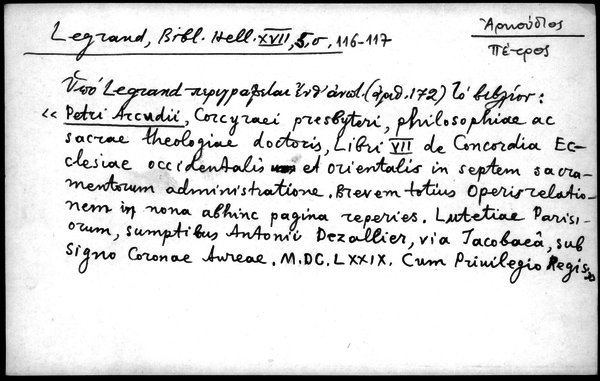 Ἀρκούδιος
Πέτρος
Legrand, Bibl. Hell. XVII, 5, σ. 116-117
Ὑπό Legrand περιγράφεται ἐνθ' ἀνωτ. (ἀριθ. 172) τό βιβλίον:
« Petri Arcudii, Corcyraei presbyteri, philosophiae ac
sacrae theologiae doctoris, Libri VII de Concordia Ec-
clesiae occidentalis et orientalis in septem sacra-
mentorum administratione. Brevem totius Operis relatio-
nem in nona abhinc pagina reperies. Lutetiae Parisi-
orum, sumptibus Antonii Dezallier, via Jacobaeâ, sub
signo Coronae Aureae. M.DC.LXXIX. Cum Privilegio Regis»